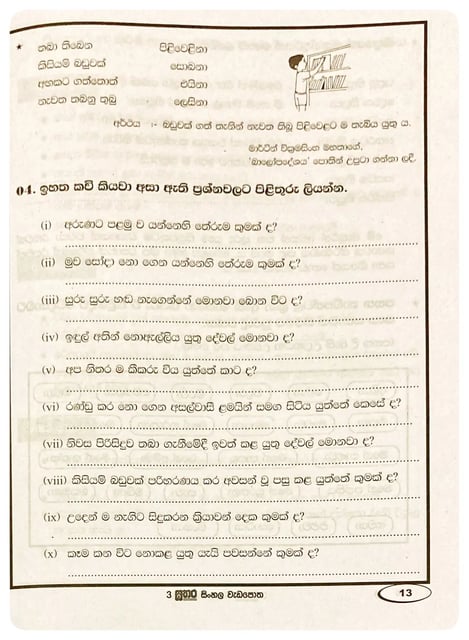 ★ තබා තිබෙන පිළිවෙළිනා
කිසියම් බඩුවක් සොබනා
අහකට ගත්තොත් එයිනා
නැවත තබනු තුබූ ලෙසිනා
අර්ථය :- බඩුවක් ගත් තැනින් නැවත තිබූ පිළිවෙළට ම තැබිය යුතු ය.
මාර්ටින් වික්‍රමසිංහ මහතාගේ,
'බාලෝපදේශය' පොතින් උපුටා ගන්නා ලදී.
04. ඉහත කවි කියවා අසා ඇති ප්‍රශ්නවලට පිළිතුරු ලියන්න.
(i) අරුණට පළමු ව යන්නෙහි තේරුම කුමක් ද?
(ii) මුව සෝදා නො ගෙන යන්නෙහි තේරුම කුමක් ද?
(iii) සුරු සුරු හඬ නැගෙන්නේ මොනවා බොන විට ද?
(iv) ඉඳුල් අතින් නොඇල්ලිය යුතු දේවල් මොනවා ද?
(v) අප නිතර ම කීකරු විය යුත්තේ කාට ද?
(vi) රණ්ඩු කර නො ගෙන අසල්වාසී ළමයින් සමග සිටිය යුත්තේ කෙසේ ද?
(vii) නිවස පිරිසිදුව තබා ගැනීමේදී ඉවත් කළ යුතු දේවල් මොනවා ද?
(viii) කිසියම් බඩුවක් පරිහරණය කර අවසන් වූ පසු කළ යුත්තේ කුමක් ද?
(ix) උදෙන් ම නැගිට සිදුකරන ක්‍රියාවන් දෙක කුමක් ද?
(x) කෑම කන විට නොකළ යුතු යැයි පවසන්නේ කුමක් ද?
3 සුතාර සිංහල වැඩපොත 13